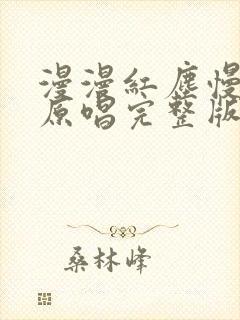 漫漫紅塵慢
原唱完整版
桑林峰